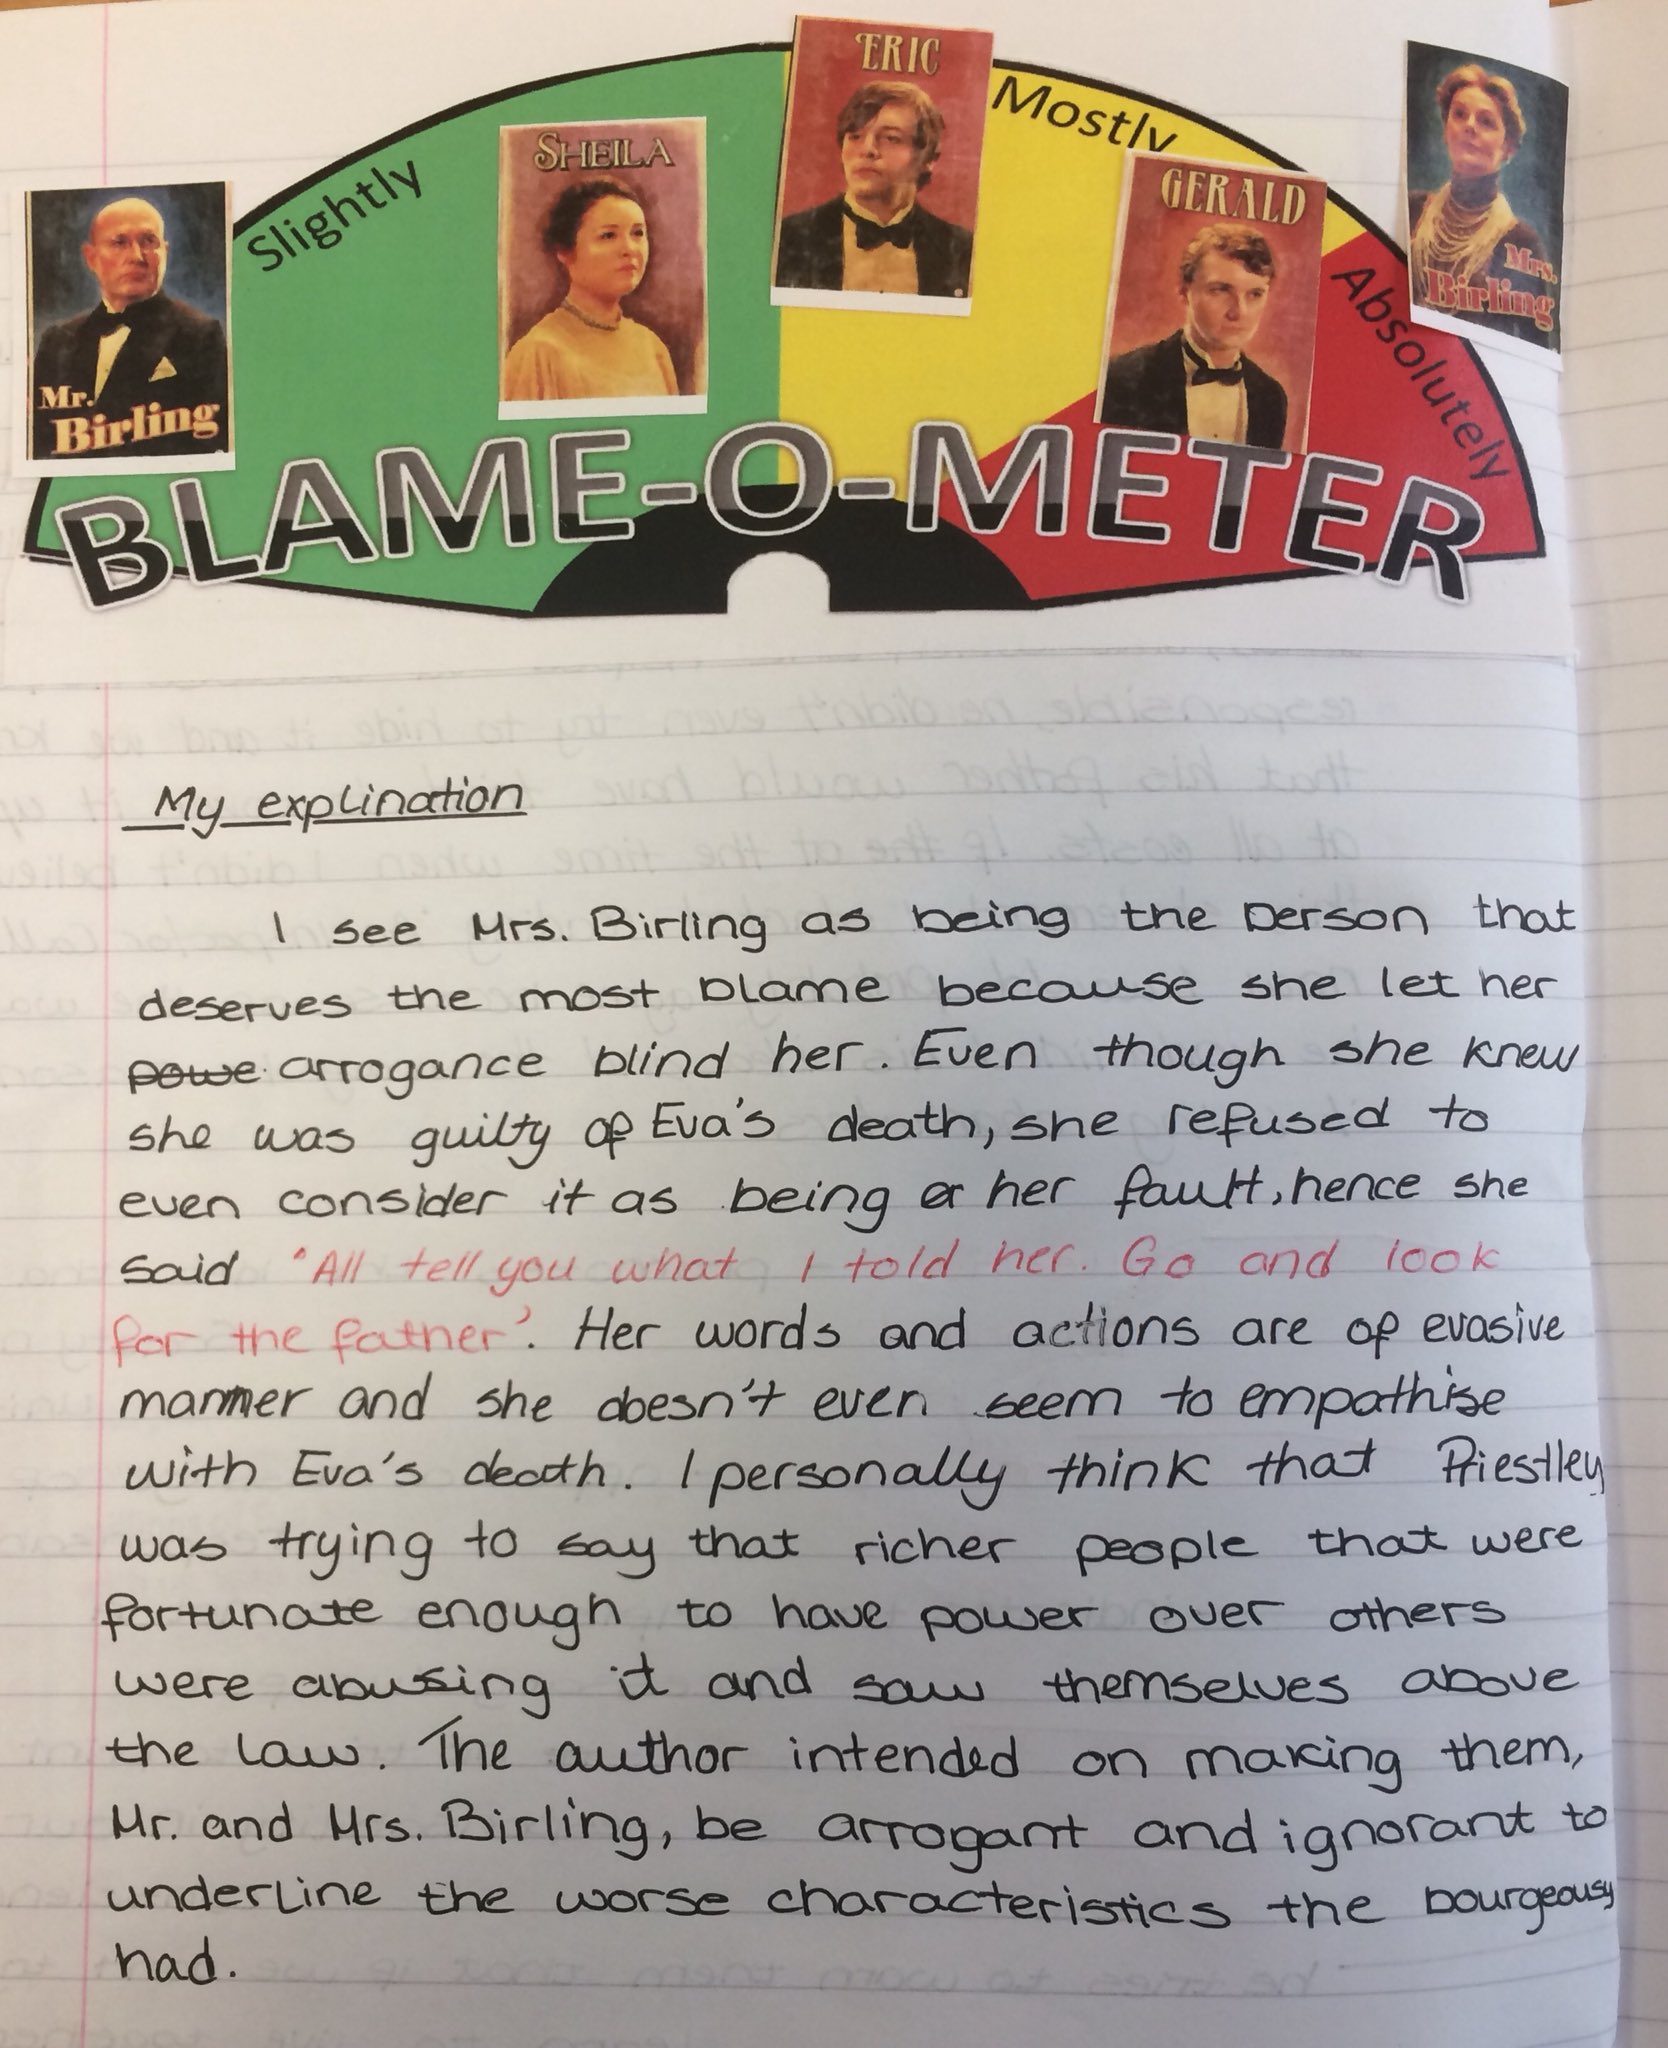 ERIC
Mostly
SHEILA
Slightly
GERALD
Mrs.
Birling
Absolutely
Mr.
Birling
BLAME-O-METER
My explination
I see Mrs. Birling as being the person that
deserves the most blame because she let her
powe arrogance blind her. Even though she knew
she was guilty of Eva's death, she refused to
even consider it as being her fault, hence she
said 'All tell you what I told her. Go and look
for the father'. Her words and actions are of evasive
manner and she doesn't even seem to empathise
with Eva's death. I personally think that Priestley
was trying to say that richer people that were
fortunate enough to have power over others
were abusing it and saw themselves above
the law. The author intended on making them,
Mr. and Mrs. Birling, be arrogant and ignorant to
underline the worse characteristics the bourgeousy
had.